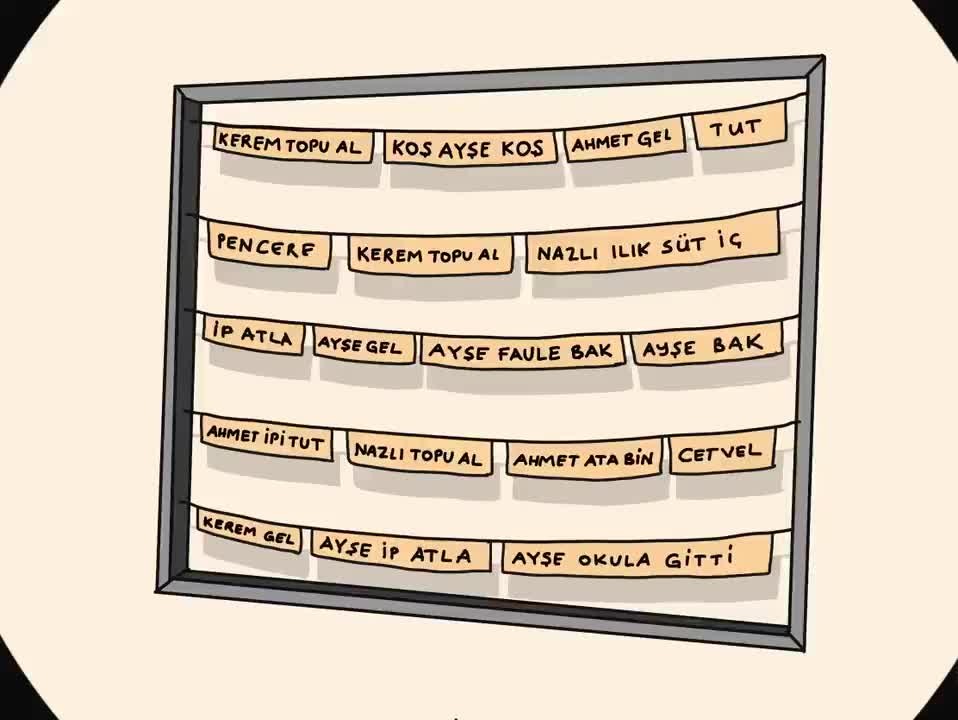 KEREM TOPU AL KOŞ AYŞE KOŞ AHMET GEL TUT
PENCERE KEREM TOPU AL NAZLI ILIK SÜT İÇ
İP ATLA AYŞE GEL AYŞE FAULE BAK AYŞE BAK
AHMET İPİ TUT NAZLI TOPU AL AHMET ATA BİN CETVEL
KEREM GEL AYŞE İP ATLA AYŞE OKULA GİTTİ